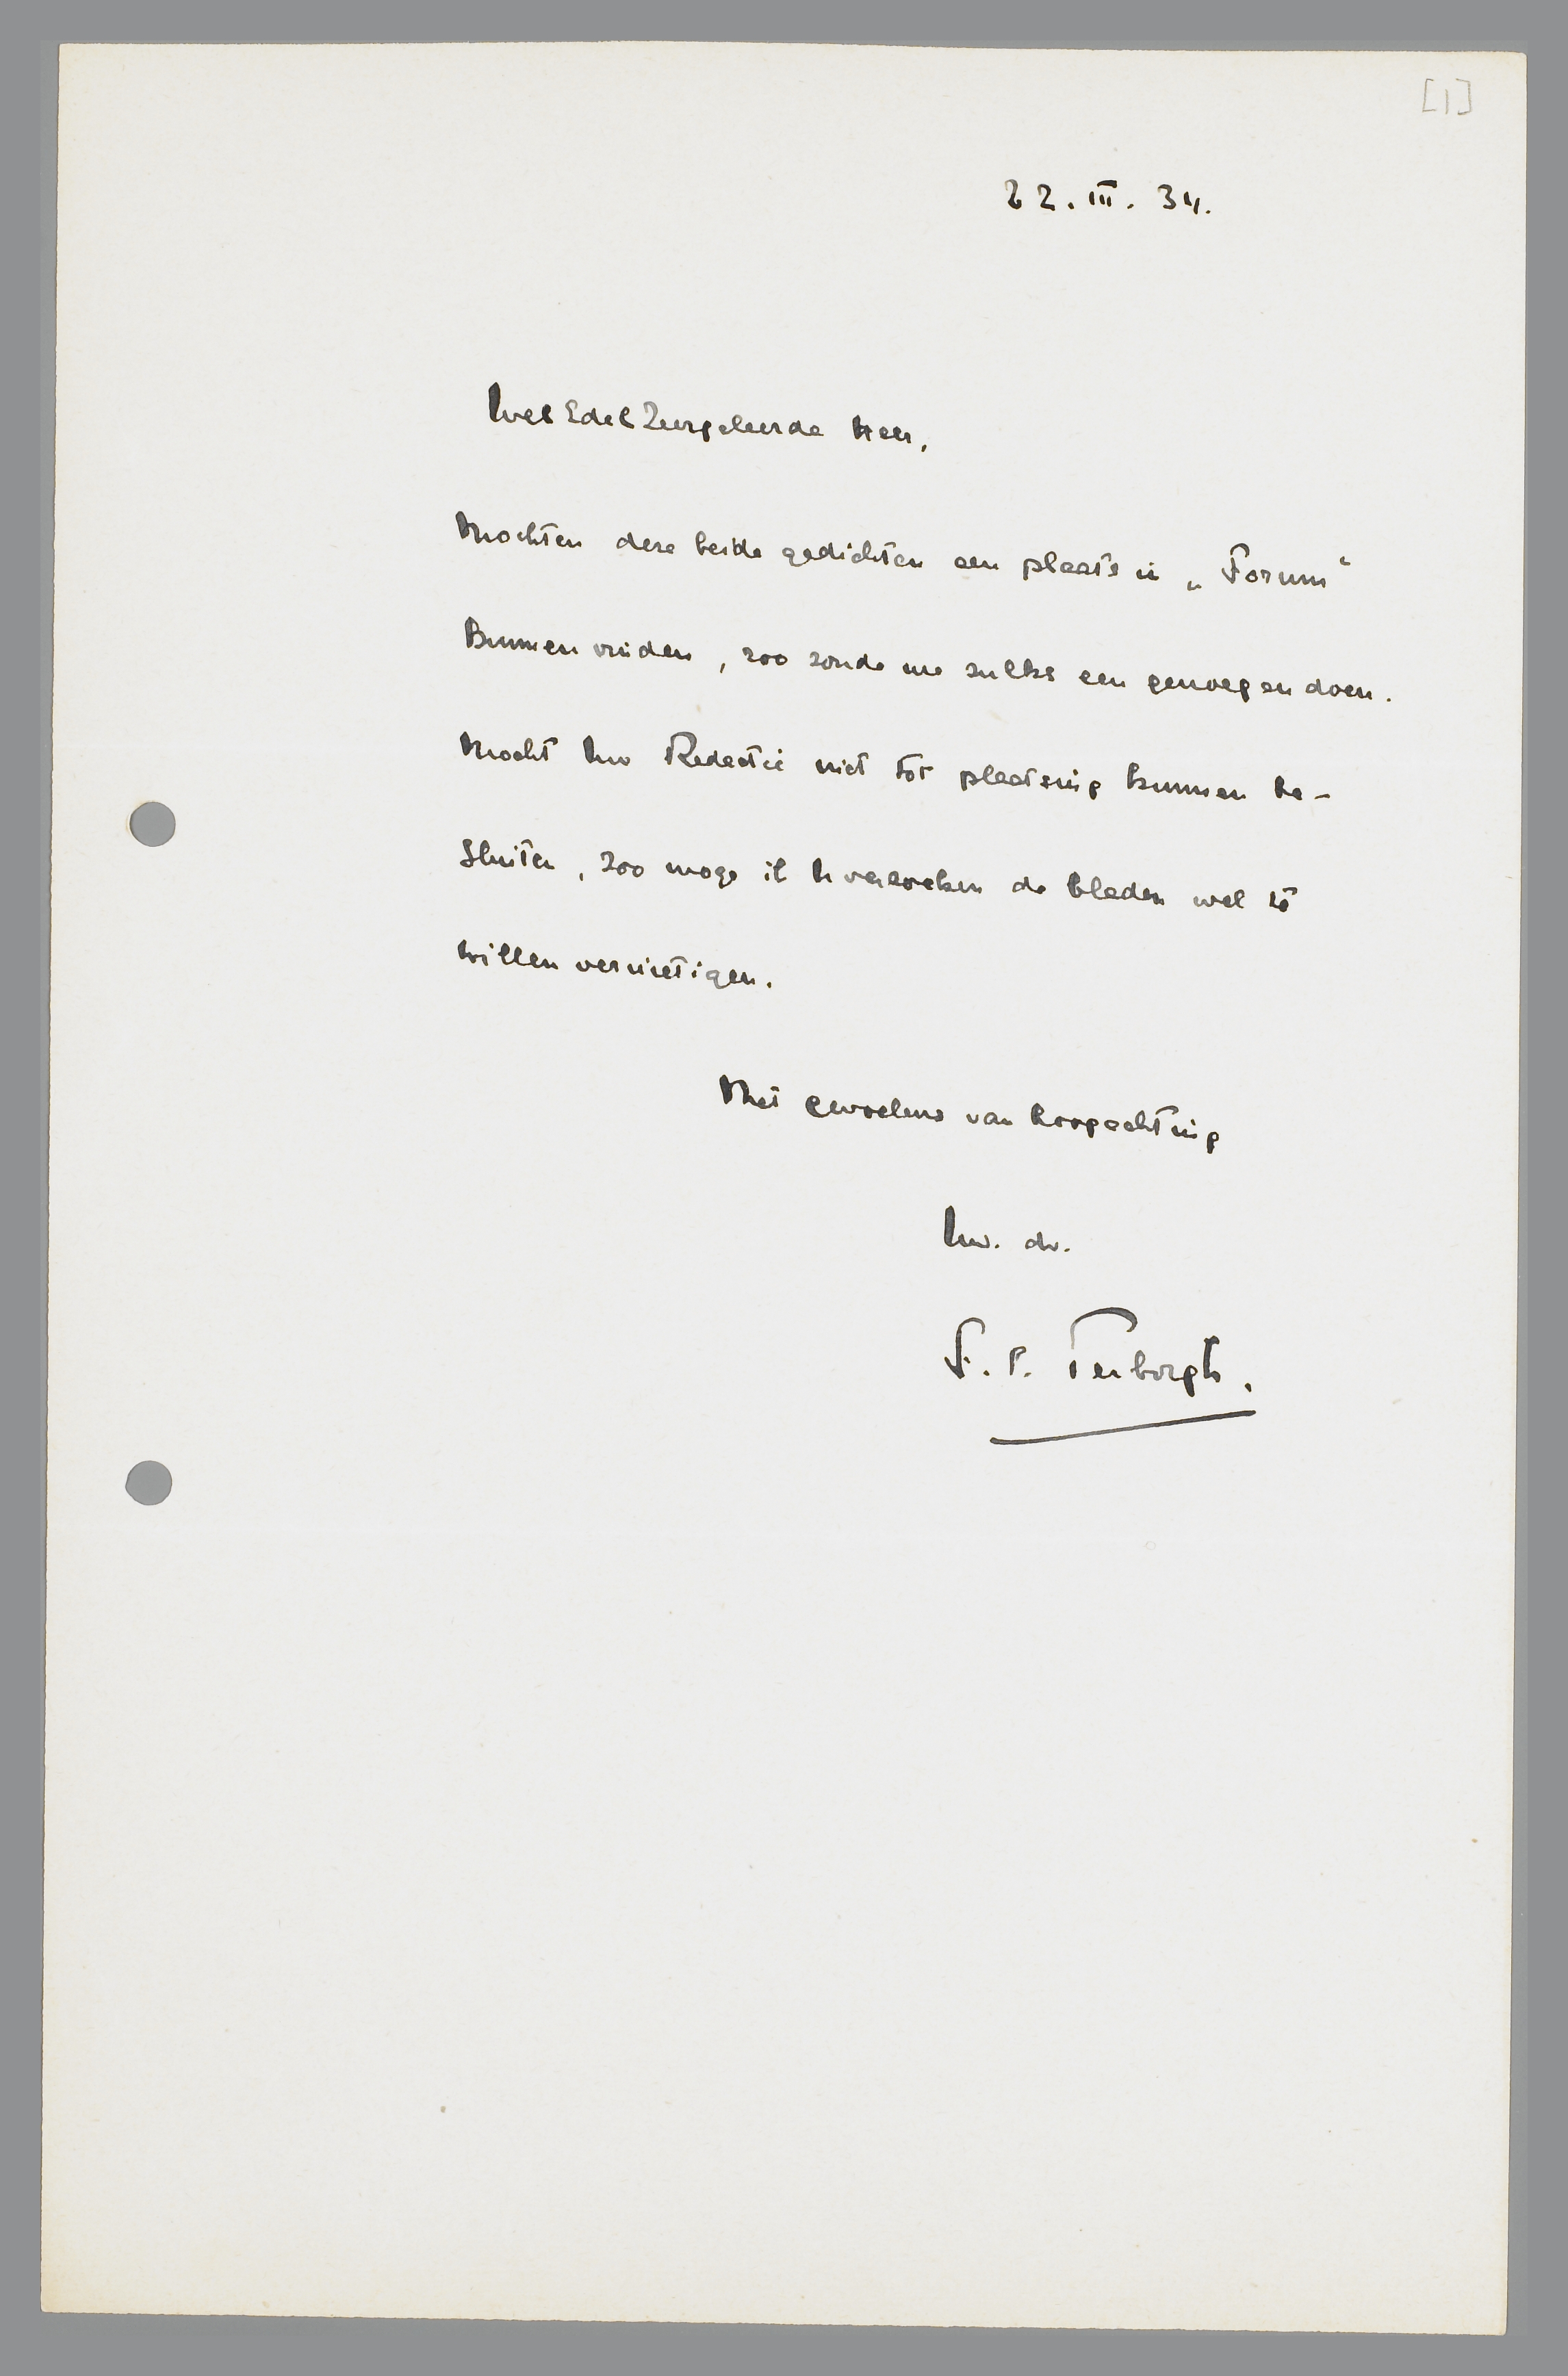 [1]
22. III. 34.
WelEdelZeergeleerde Heer,
Mochten deze beide gedichten een plaats in „Forum“
kunnen vinden, zoo zoude me zulks een genoegen doen.
Mocht Uw Redactie niet tot plaatsing kunnen be-
sluiten, zoo moge ik U verzoeken de bladen wel te
willen vernietigen.
Met gevoelens van hoogachting
Uw. dv.
F. C. Terborgh.